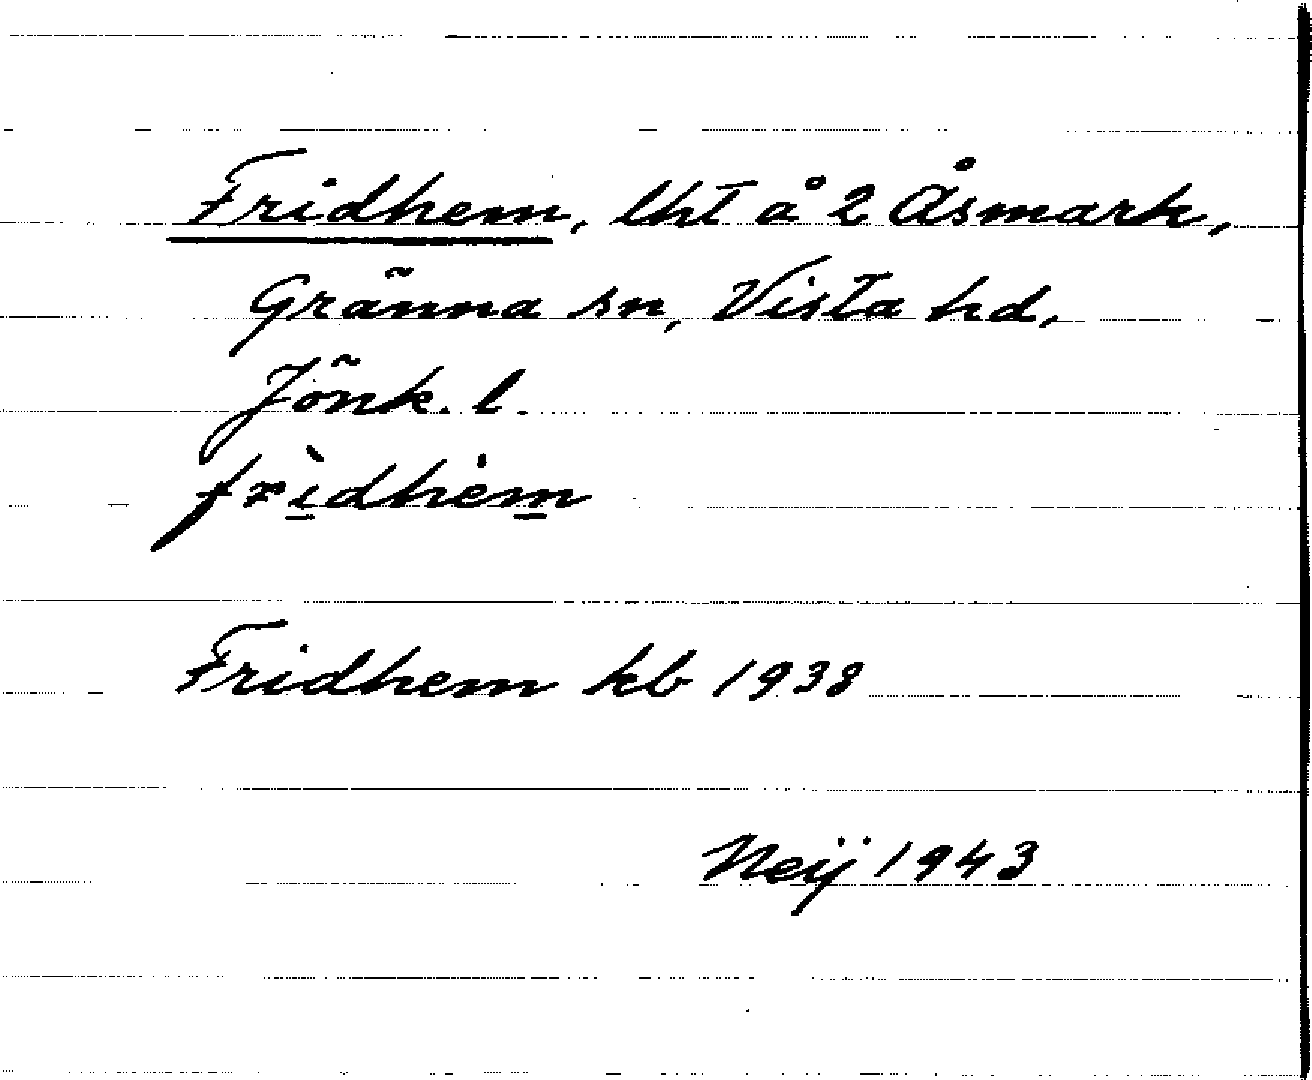 Fridhem, lht å 2 Åsmark,
Gränna sn, Vista hd,
Jönk. l.
frì̲dhėm̲
Fridhem kb 1938
Neij 1943